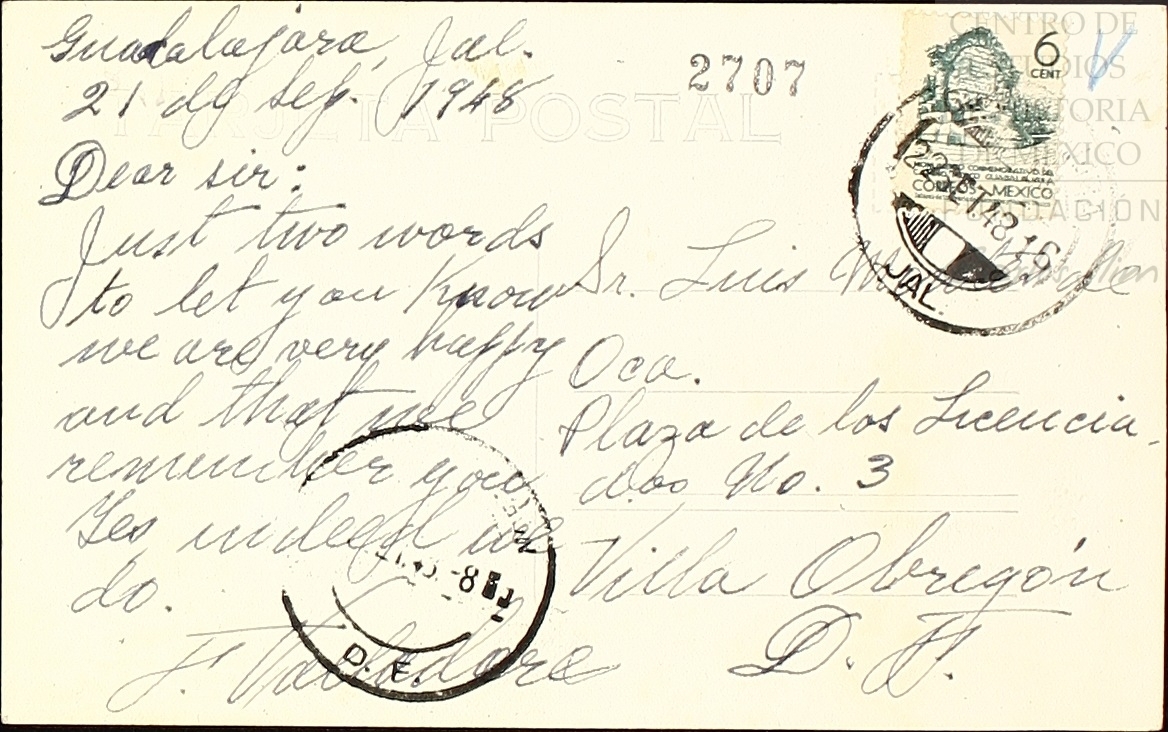 Guadalajara, Jal.
21 de Sep. 1948
TARJETA POSTAL
2707
Dear sir:
Just two words
to let you Know
we are very happy
and that we
remember you
Yes indeed we
do.
6
CENT
CORREOS MEXICO
22 SET 48 16
JAL.
Sr. Luis
Oca.
Plaza de los Licencia,
dos No. 3
Villa Obregón
D. F.
D. F.
CENTRO DE
ESTUDIOS
DE HISTORIA
DE MÉXICO
FUNDACIÓN